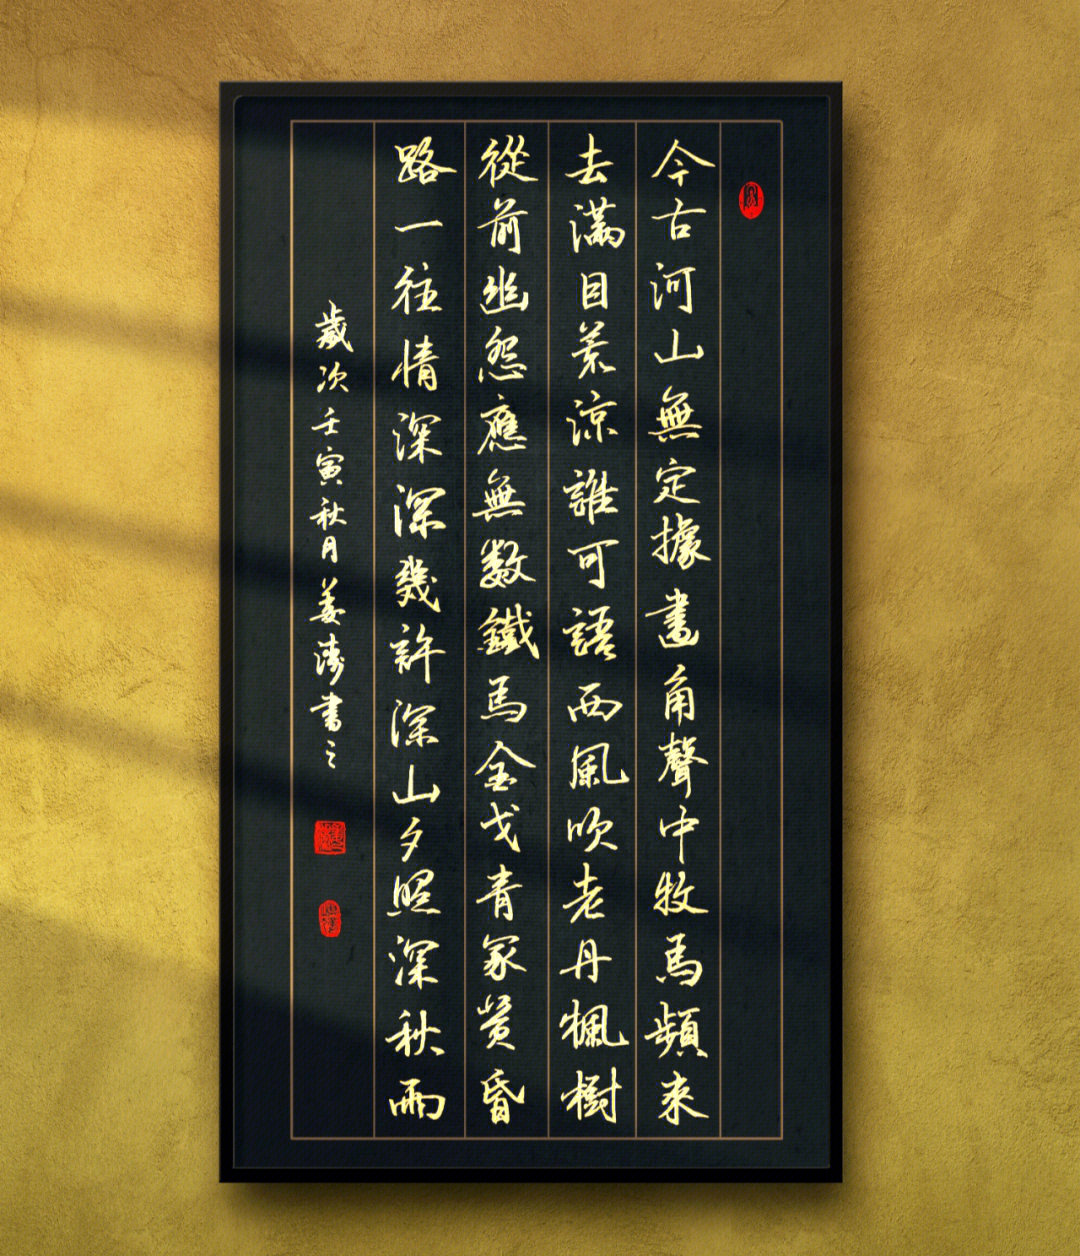 今古河山無定據畫角聲中牧馬頻來
去滿目荒涼誰可語西風吹老丹楓樹
從前幽怨應無数鐵馬金戈青冢黃昏
路一往情深深幾許深山夕照深秋雨
歲次壬寅秋月姜濤書之